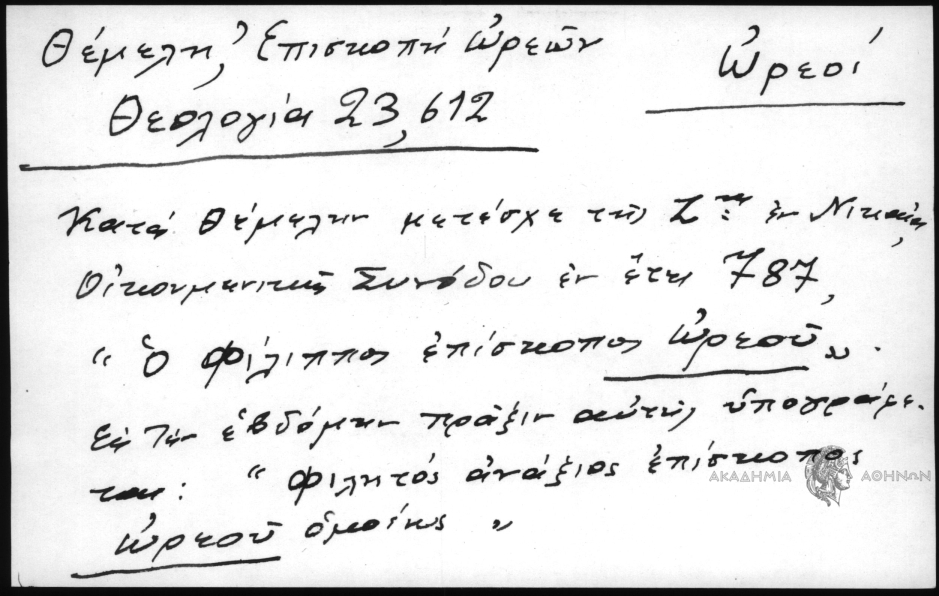 Θέμελη, Ἐπισκοπή Ὠρεῶν
Ὠρεοί
Θεολογία 23, 612
Κατά Θέμελην μετέσχε τῆς Ζης ἐν Νικαίᾳ
Οἰκουμενικῆς Συνόδου ἐν ἔτει 787,
“ Ὁ Φίλιππος ἐπίσκοπος Ὠρεοῦ„.
Εἰς τήν ἑβδόμην πρᾶξιν αὐτῆς ὑπογράφε-
ται: “ Φιλητός ἀνάξιος ἐπίσκοπος
Ὠρεοῦ ὁμοίως „
ΑΚΑΔΗΜΙΑ ΑΘΗΝΩΝ